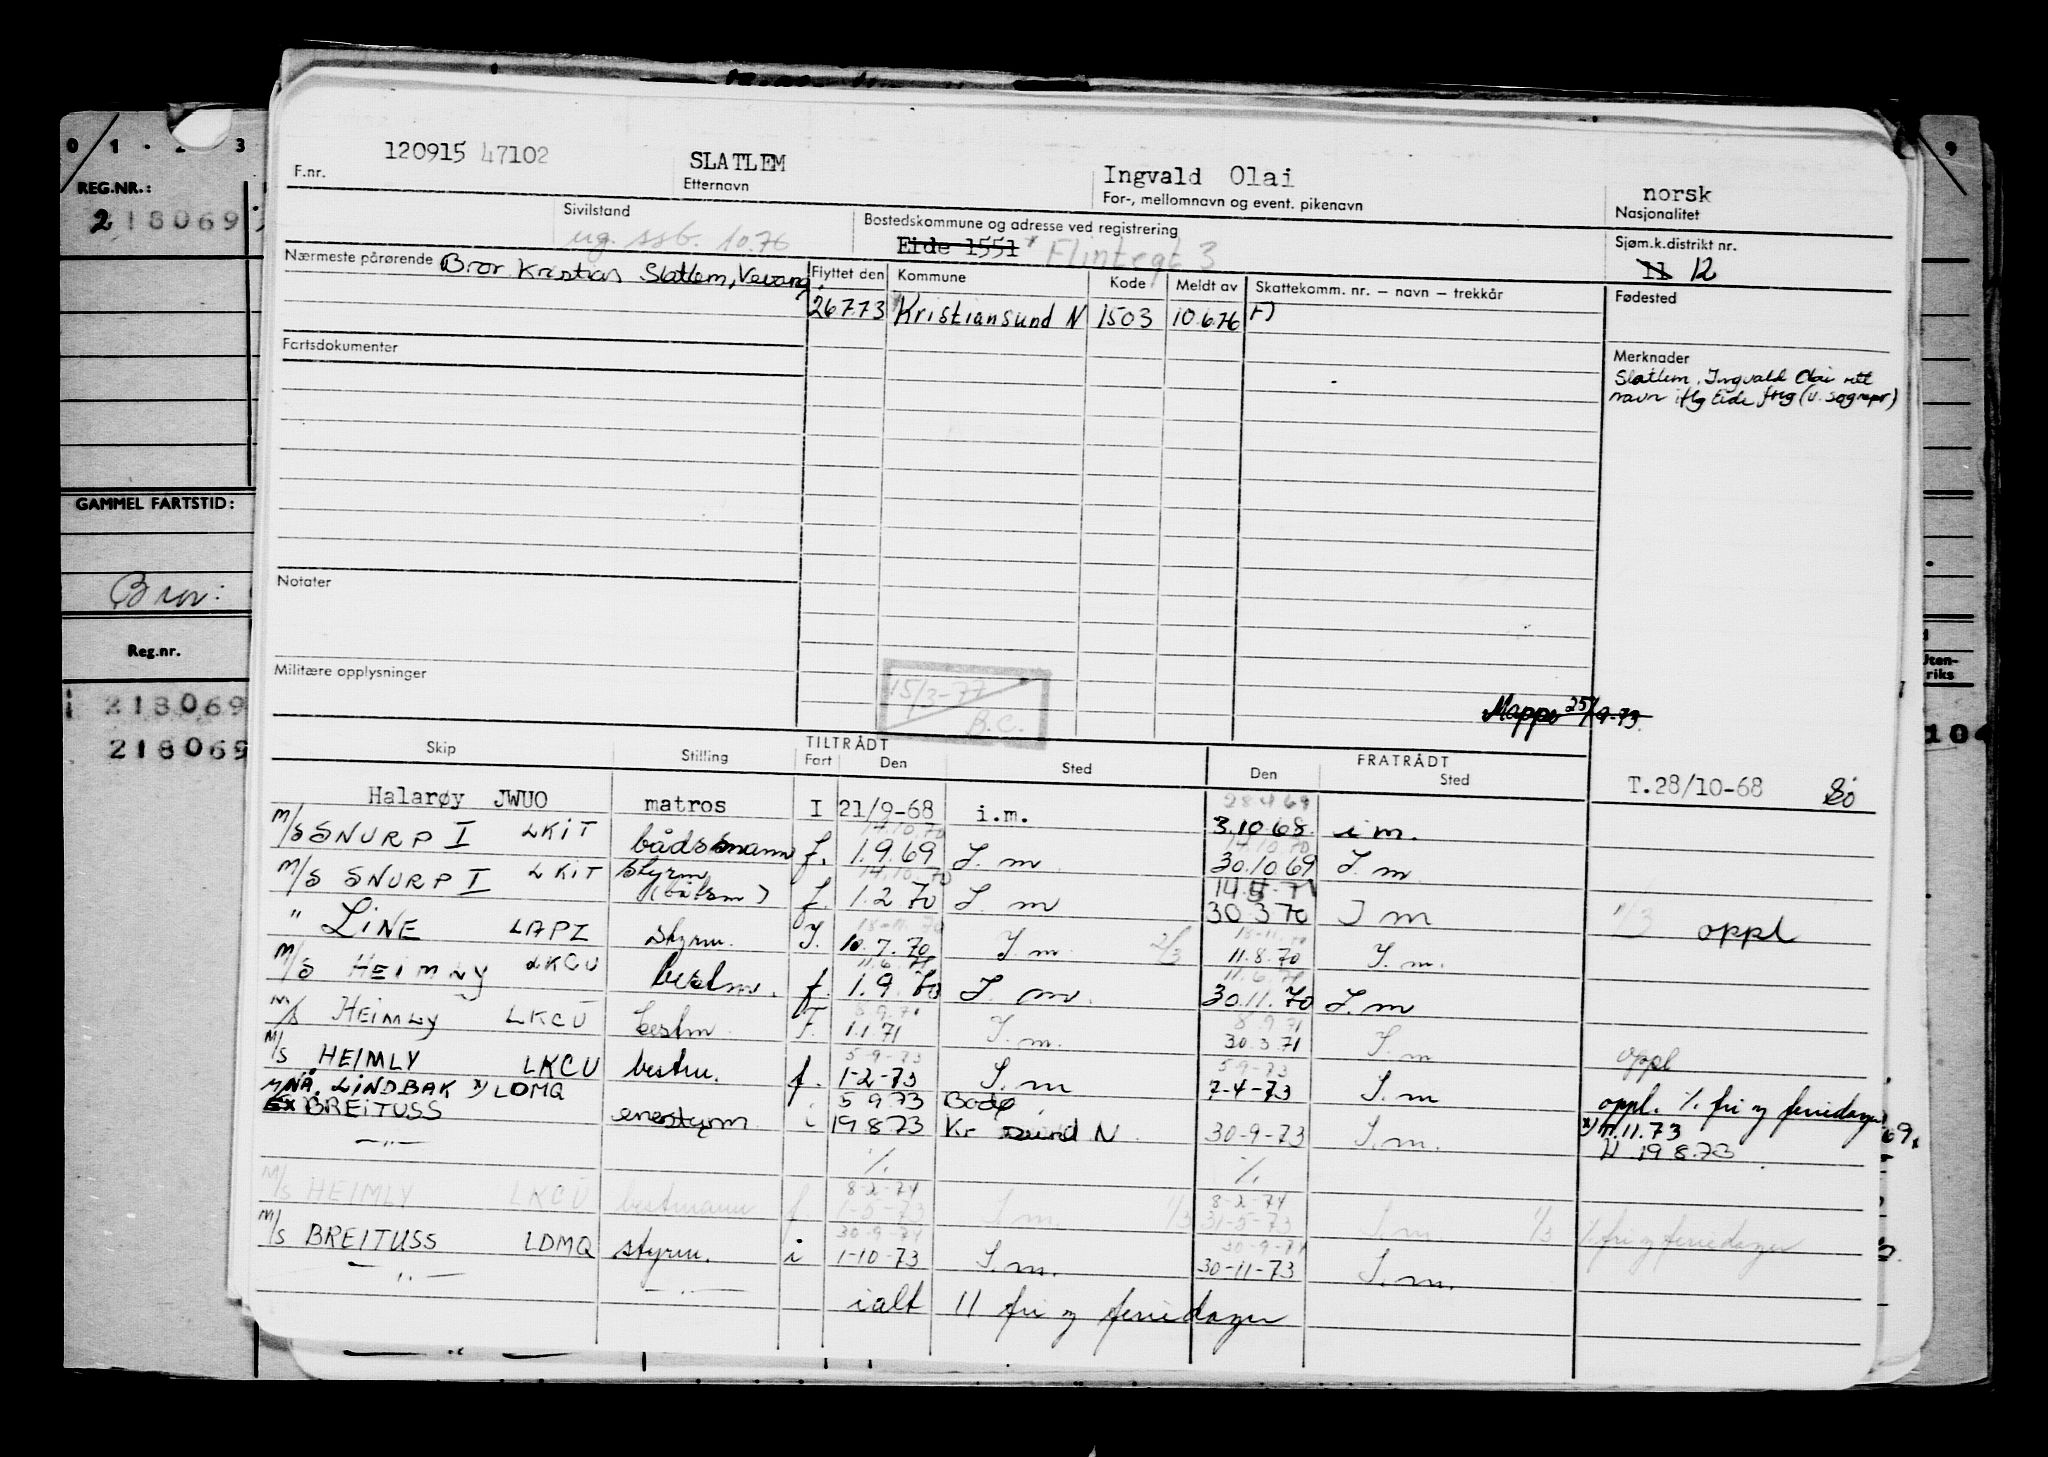 0 1 - 2 3
9
REG.NR.:
218069
GAMMEL FARTSTID:
Bror:
Reg.nr.
i 218069
218069
Uten-
riks
104
120915 47102 SLATLEM Ingvald Olai norsk
F.nr. Etternavn For-, mellomnavn og event. pikenavn Nasjonalitet
Sivilstand Bostedskommune og adresse ved registrering Sjøm.k.distrikt nr.
ug. ssb. 10.76 Eide 1551 * Flintegt 3 11 12
Nærmeste pårørende Bror Kristian Slatlem, Vevang Flyttet den Kommune Kode Meldt av Skattekomm. nr. — navn — trekkår Fødested
26773 Kristiansund N 1503 10.6.76 F)
Fartsdokumenter
Merknader
Slatlem, Ingvald Olai rett
navn iflg Eide freg (u. sognepr)
Notater
Militære opplysninger
15/3-77
B.C.
Mappe 25/9-73
Skip Stilling TILTRÅDT FRATRÅDT
Fart Den Sted Den Sted
T.28/10-68
28 4 69
Halarøy JWUO matros I 21/9-68 i.m. 3.10 68. i m.
14.10.70 14.10.70
M/S SNURP I LKIT bådsmann f. 1.9.69 I. m. 30.10 69 I. m.
14.10.70
M/S SNURP I LKIT Styrm (båtsm) f. 1.2 70 I. m 30 3 70 I m oppl
" LINE LAPI styrm. I. 10.7.70 I m. 2/3 11.8.70 I. m.
11.6.71 11.6.71
M/S HEIMLY LKCU bestm. f. 1.9.70 I. m. 30.11.70 I. m
8.9.71 8.9.71
M/S HEIMLY LKCU bestm F. 1.1.71 I. m. 30.3.71 I. m oppl
5-9-73 5-9-73
M/S HEIMLY LKCU bestm. f. 1-2-73 I. m 7-4-73 I. m oppl. ./. fri og feriedager
M/S NÅ. LINDBAK x) LDMQ 5 9 73 Bodø x) 11.11.73
EX BREITUSS enestyrm i 19 8 73 Kr sund N 30-9-73 I. m. U 19 8.73
— " — ./. ./.
8-2-74 8-2-74
M/S HEIMLY LKCU bestmann f. 1-5-73 I m. 1/3 31-5-73 I m 1/3 ./. fri og feriedager
30-9-74 30-9-74
M/S BREITUSS LDMQ styrm. i 1-10-73 I. m. 30-11-73 I. m.
— " — — " —
ialt 11 fri og feriedager